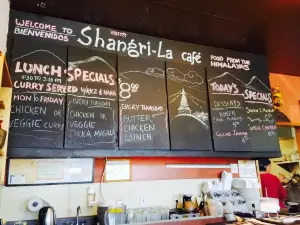 WELCOME TO
BIENVENIDOS
Shangri-La café
FOOD FROM THE
HIMALAYAS
LUNCH SPECIALS
11:30 TO 3:30 PM
CURRY SERVED W/RICE & NAAN
MON TO FRIDAY
CHICKEN OR
VEGGIE CURRY
EVERY TUESDAY
CHICKEN OR
VEGGIE
TIKKA MASALA
8.00
EVERY THURSDAY
BUTTER
CHICKEN
LUNCH
TODAY'S SPECIALS
DESSERTS
KHEER
GULAB JAMUN